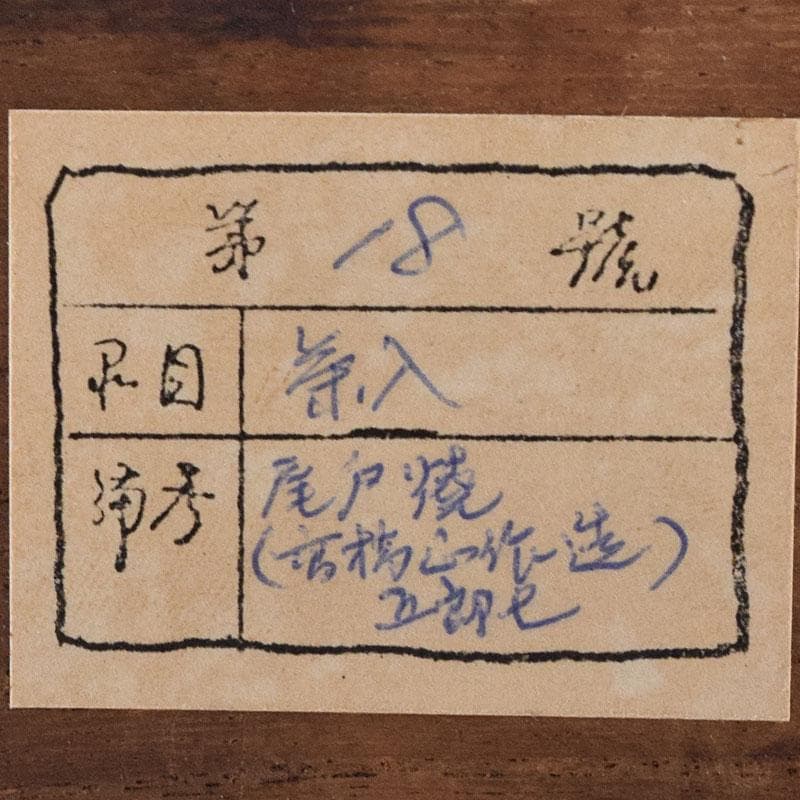 第 18 號
品目 茶入
備考 尾戸焼
(高橋山作造)
五郎七